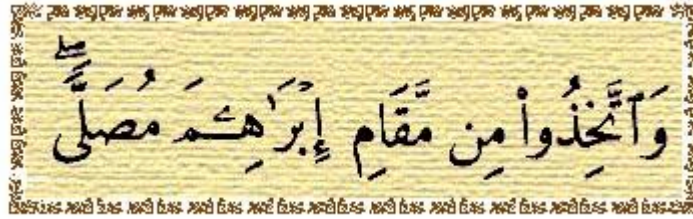 وَٱتَّخِذُوا۟ مِن مَّقَامِ إِبْرَٰهِـۧمَ مُصَلًّى ۖ